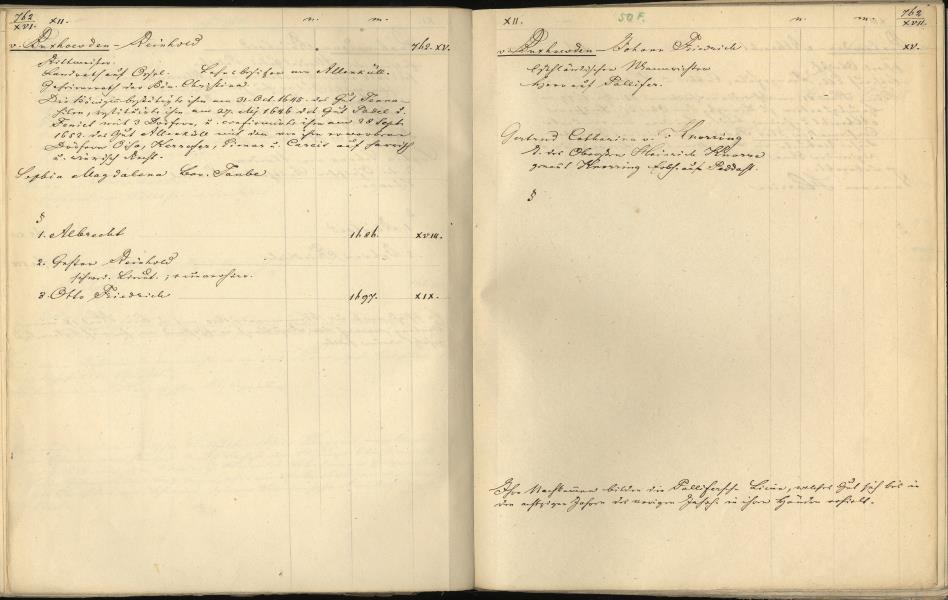 762
XVI.
XII.
n.
m.
v. Buxhoewden – Reinhold
762. XV.
Rittmeister.
Landrath auf Oesel. Pfandbesitzer von Allenküll.
Geheimrath der Kön. Christine
Die Königin bestätigte ihm am 31. Oct. 1645. das Gut
restituirte ihm am 27. Mij 1646 das Gut Padel u.
mit 3 Dörfern, u. confirmirte ihm am 28 Sept.
1652. das Gut Allenküll mit den von ihm erworbenen
Dörfern Oisa, Kerrefer, u. auf harrisch
u. wierisch Recht.
Sophia Magdalena Bar. Taube
§
1. Albrecht 1686. XVIII.
2. Gustav Reinhold
schwed. Lieut.;
3. Otto Friedrich 1697. XIX.
XII.
SQF.
n.
m.
762
XVII.
v. Buxhoewden – Johann Friedrich
XV.
Ehstländischer Mannrichter
Herr auf Pallifer.
Gertrud Catharina v. Knorring
T. des Obersten Heinrich Knorre
genannt Knorring Erbh. auf Peddast.
§
Ihre Nachkommen bilden die Pallifersche Linie, welches Gut sich bis in
den achtziger Jahren des vorigen Jahrh. in ihren Händen erhielt.